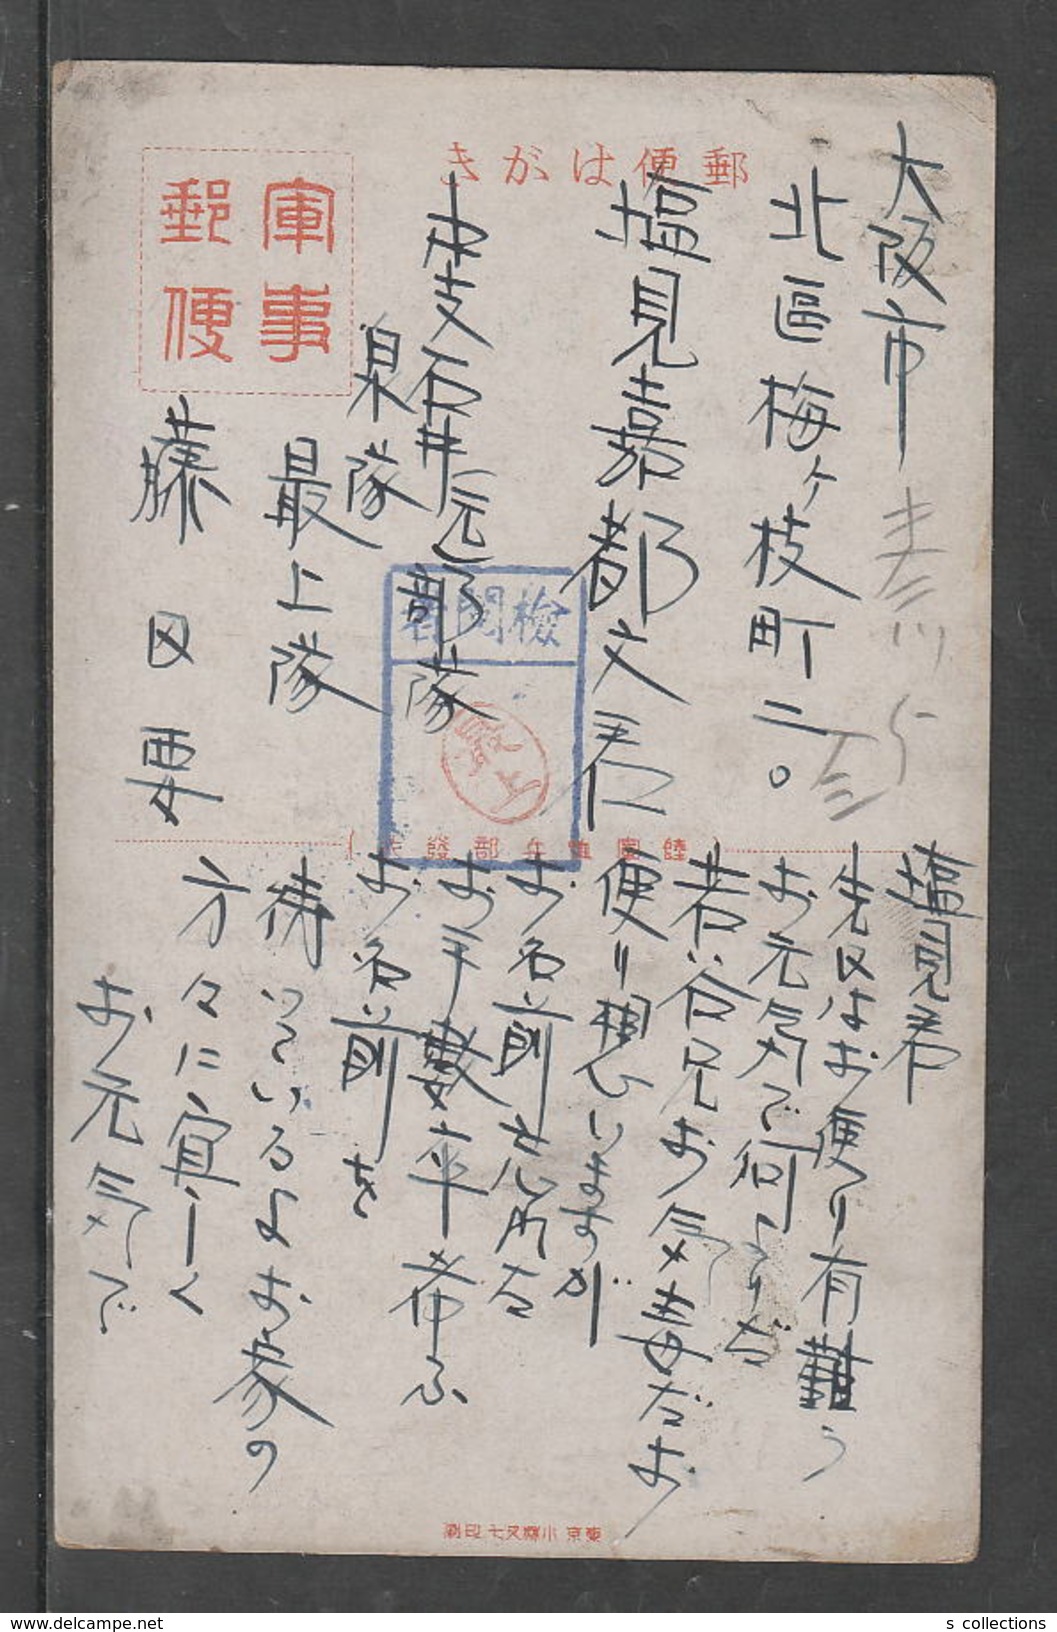 郵便はがき
軍事
郵便
大阪市
北區梅ヶ枝町二〇
塩見嘉都文君
中支石井(元)部隊
泉隊
最上隊
藤田要
検閲済
最上
(陸軍恤兵部發行)
塩見君
先日はお便り有難う
お元気で何よりだ
若谷兄お気毒だお
便り想いますが
お名前忘れた
お手數乍希ふ
お名前を
待っているよお家の
方々に宜しく
お元気で
東京 小林又七印刷
s collections